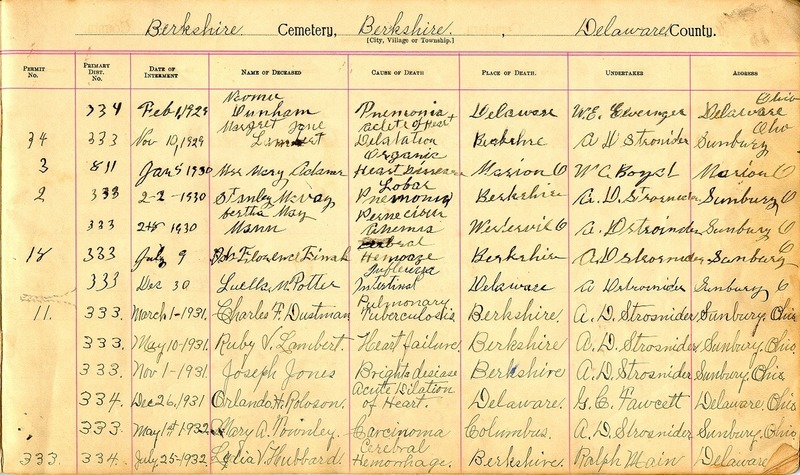 Berkshire Cemetery, Berkshire, Delaware County.
[City, Village or Township.]
PERMIT No. PRIMARY Dist. No. DATE OF INTERMENT NAME OF DECEASED CAUSE OF DEATH PLACE OF DEATH. UNDERTAKER ADDRESS
334 Feb 1, 1929 Dunham Pnemonia Delaware W.E. Delaware Ohio
34 333 Nov 10, 1929 Margret Jane Lambert acute of Heart Dilatation Berkshire A D Strosnider Sunbury Ohio
3 811 Jan 5 1930 Mrs Mary Organic Heart Disease Marion O W C Boyst Marion O
2 333 2-2-1930 Stanley McVay Lobar Pnemonia Berkshire A. D. Strosnider Sunbury O
333 1930 bertha May Mann Pernecious Anemas Westervil O A D Strosnider Sunbury O
18 333 July 9 Florence Finch Hemooge Berkshire A D Strosnider Sunbury O
333 Dec 30 Luella M Potter Influenza Intestinal Delaware A D Strosnider Sunbury O
11. 333. March 1-1931. Charles F. Dustman Pulmonary Tuberculosis. Berkshire. A. D. Strosnider Sunbury, Ohio.
333. May 10-1931. Ruby V. Lambert. Heart failure. Berkshire A. D. Strosnider Sunbury, Ohio.
333. Nov 1-1931. Joseph Jones Brights disease Berkshire A. D. Strosnider Sunbury, Ohio
334. Dec 26, 1931 Orlando H. Roloson. Acute Dilation of Heart. Delaware. G. C. Fawcett Delaware, Ohio
333. May 1st 1932 Mary A. Carcinoma Columbus. A. D. Strosnider Sunbury, Ohio.
333. 334. July 25-1932. Lydia V. Hubbard Cerebral Hemorrhage. Berkshire. Ralph Main Delaware